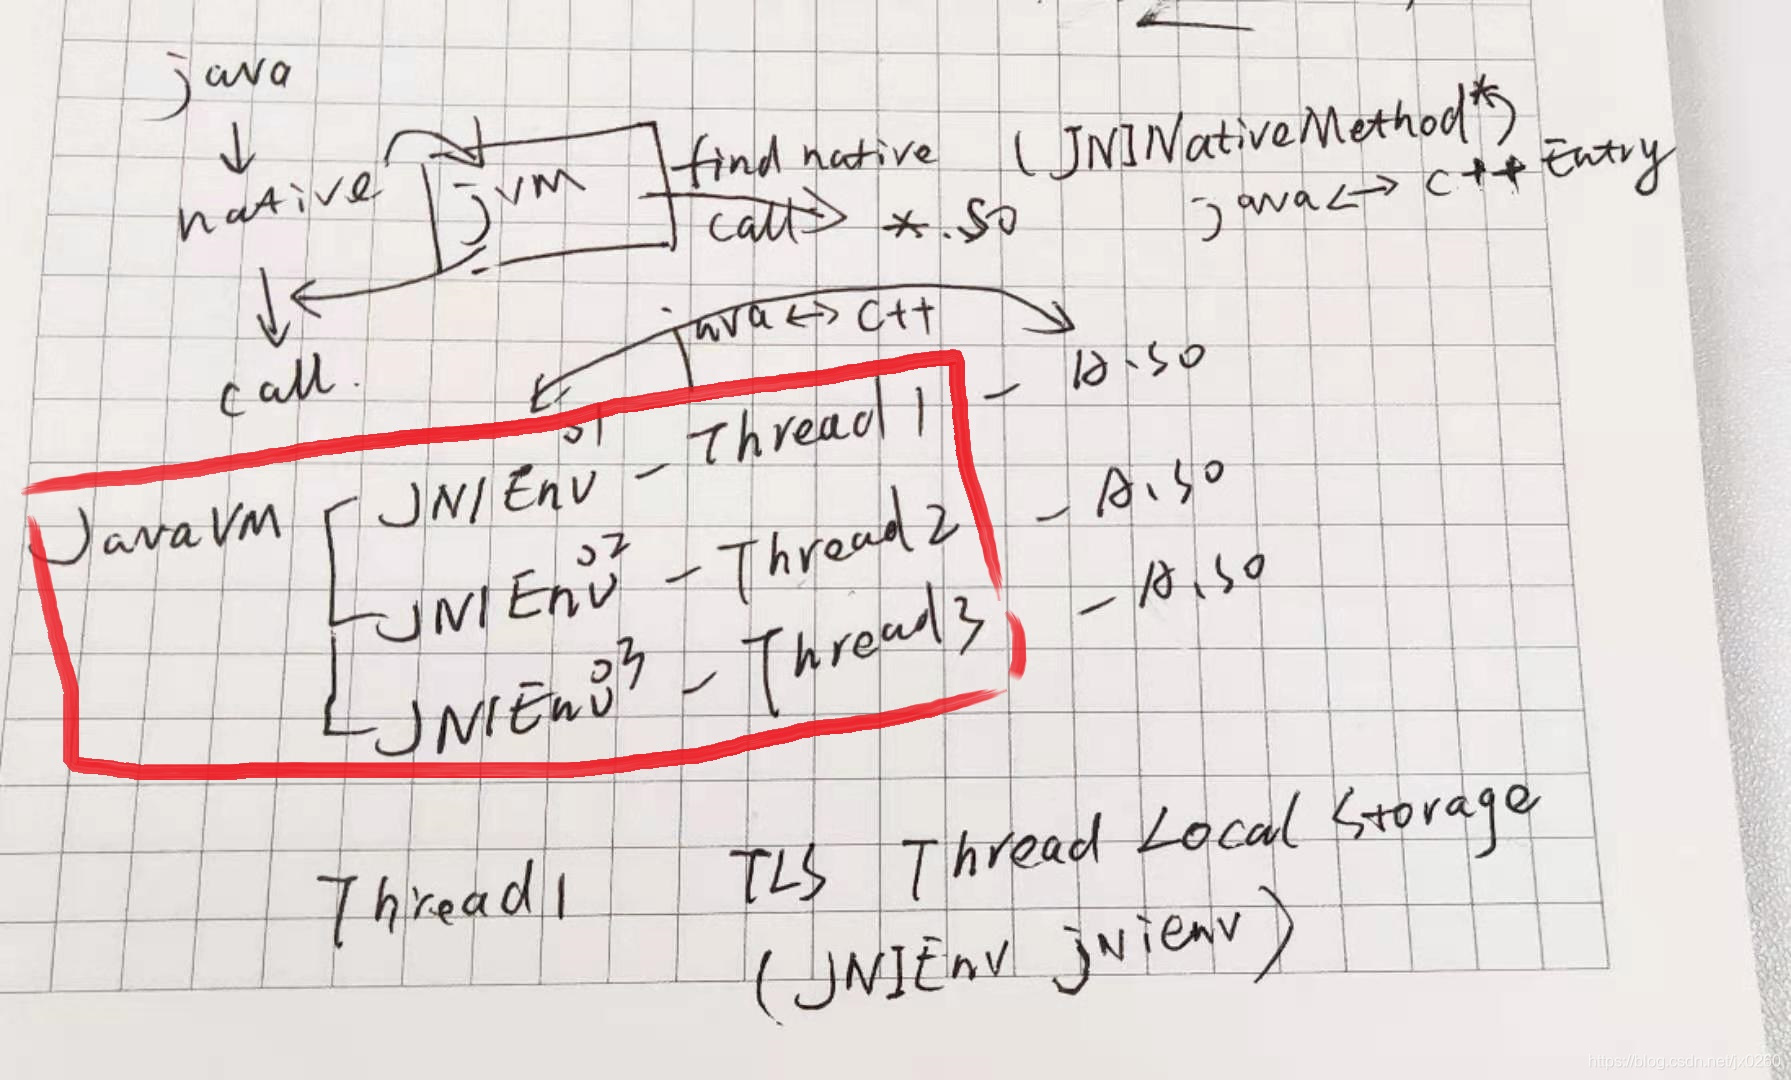 java
native
jvm
find native
call
*.so
(JNINativeMethod*)
java <-> C++ Entry
call.
java <-> C++
A.so
JavaVM
01
JNIEnv - Thread1 - A.so
02
JNIEnv - Thread2 - A.so
03
JNIEnv - Thread3 - A.so
Thread1
TLS Thread Local Storage
(JNIEnv jnienv)